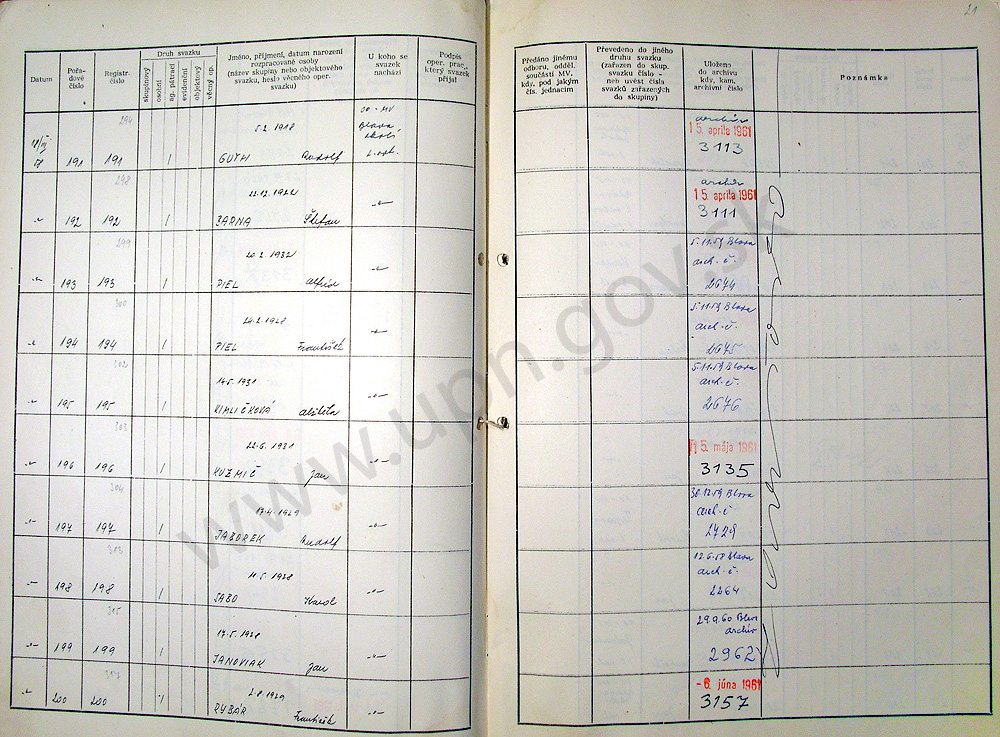 21
Datum
Pořadové číslo
Registr. číslo
Druh svazku
skupinový
osobní
ag. pátrací
evidenční
objektový
věcný op.
Jméno, příjmení, datum narození
rozpracované osoby
(název skupiny nebo objektového
svazku, heslo věcného oper.
svazku)
U koho se
svazek
nachází
Podpis
oper. prac.,
který svazek
přijal
Předáno jinému
odboru, odděl.
součásti MV.
kdy, pod jakým
čís. jednacím
Převedeno do jiného
druhu svazku
(zařazen do skup.
svazku číslo -
neb uvést čísla
svazků zařazených
do skupiny)
Uloženo
do archivu
kdy, kam,
archivní číslo
Poznámka
294
5.2. 1918
191 191 1 GUTH Rudolf
archív
15. apríla 1961
3113
298
22.12. 1922
192 192 1 BARNA Štefan
archív
15. apríla 1961
3111
299
20.2. 1932
193 193 1 PIEL Alfréd
5.11.59 Blava
arch. č.
2674
300
24.2. 1928
194 194 1 PIEL František
5.11.59 Blava
arch. č.
2675
302
14.5. 1931
195 195 1 KIMLIČKOVÁ Alžbeta
5.11.59 Blava
arch. č.
2676
303
22.6. 1931
196 196 1 KUZMIČ Jan
5. mája 1961
3135
304
17.4. 1929
197 197 1 JABOREK Rudolf
30.12.59 Blava
arch. č.
2729
313
11.5. 1928
198 198 1 SABO Karol
12.6.58 Blava
arch. č.
2264
315
17.5. 1928
199 199 1 JANOVIAK Jan
29.9.60 Blava
archív
2962
317
2.8. 1929
200 200 1 RYBÁR František
-6. júna 1961
3157
www.upn.gov.sk